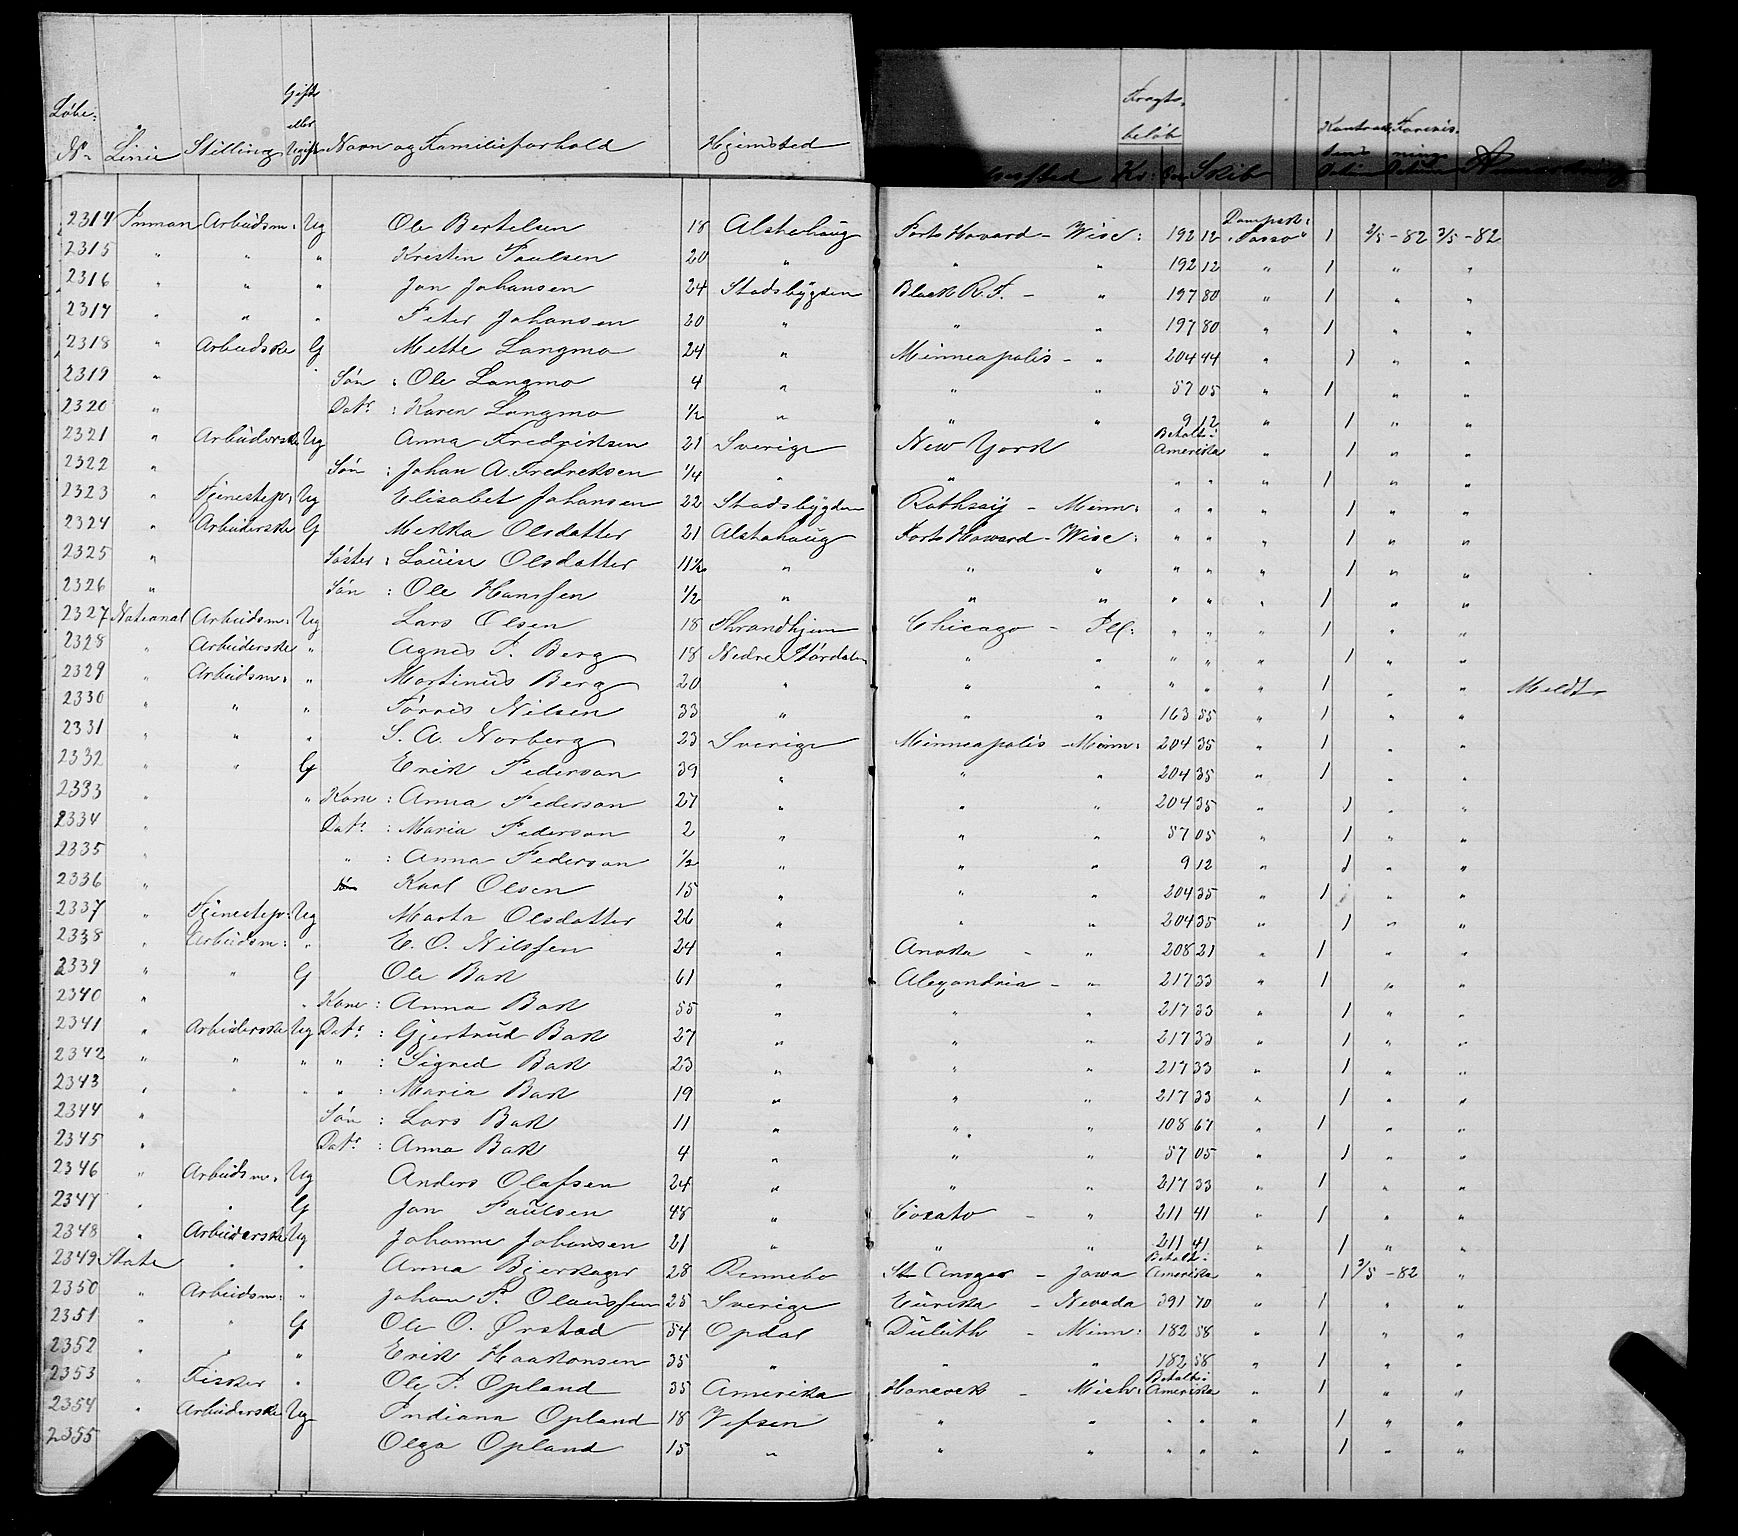 Løbe: Linie Stilling Gift eller Ugift Navn og Familieforhold Hjemsted Fragtbeløb Kr: Øre Skib
2314 Inman Arbeidsm: Ug Ole Bertelsen 18 Alstahaug Forts Howard - Wisc: 192 12 Dampsk: "Tasso" 1 2/5 - 82 3/5 - 82
2315 " " " Kristen Paulsen 20 " " " 192 12 " 1 " "
2316 " " " Jon Johansen 24 Stadsbygden Black R. F. - " 197 80 " 1 " "
2317 " " " Peter Johansen 20 " " " 197 80 " 1 " "
2318 " Arbeidske G Mette Langmo 24 " Minneapolis - " 204 44 " 1 " "
2319 " Søn : Ole Langmo 4 " " " 57 05 " 1 " "
2320 " Dat: : Karen Langmo 1/2 " " " 9 12 " 1 " "
2321 " Arbeiderske Ug Anna Fredriksen 21 Sverige New York Betalt i Amerika " 1 " "
2322 " Søn : Johan A. Fredreksen 1/4 " " " " " 1 " "
2323 " Tjenestep: Ug Elisabet Johansen 22 Stadsbygden Rothsay - Minn: " " " 1 " "
2324 " Arbeiderske G Mekka Olsdatter 21 Alstahaug Forts Howard - Wisc: " " " 1 " "
2325 " Søster : Louise Olsdatter 11 1/2 " " " " " " 1 " "
2326 " Søn : Ole Hanssen 1/2 " " " " " " 1 " "
2327 National Arbeidsm: Ug Lars Olsen 18 Throndhjem Chicago - Ill: " " " 1 " "
2328 " Arbeiderske " Agnes P. Berg 18 Nedre Størdalen " " " " " 1 " "
2329 " Arbeidsm: " Martinus Berg 20 " " " " " " 1 " " Meldt
2330 " " " Torres Nilsen 33 " " " 163 55 " 1 " "
2331 " " " S. A. Norberg 23 Sverige Minneapolis - Minn: 204 35 " 1 " "
2332 " " G Erik Pederson 39 " " " 204 35 " 1 " "
2333 " " Kone : Anna Pederson 27 " " " 204 35 " 1 " "
2334 " Dat: : Maria Pederson 2 " " " 57 05 " 1 " "
2335 " " : Anna Pederson 1/2 " " " 9 12 " 1 " "
2336 " Karl Olsen 15 " " " 204 35 " 1 " "
2337 " Tjenestep: Ug Marta Olsdatter 26 " " " 204 35 " 1 " "
2338 " Arbeidsm: " E. O. Nilssen 24 " Anoka - " 208 21 " 1 " "
2339 " " G Ole Bak 61 " Alexandria - " 217 33 " 1 " "
2340 " " Kone : Anna Bak 55 " " " 217 33 " 1 " "
2341 " Arbeiderske Ug Dat: : Gjertrud Bak 27 " " " 217 33 " 1 " "
2342 " " " " : Sigred Bak 23 " " " 217 33 " 1 " "
2343 " " " " : Maria Bak 19 " " " 217 33 " 1 " "
2344 " Søn : Lars Bak 11 " " " 108 67 " 1 " "
2345 " Dat: : Anna Bak 4 " " " 57 05 " 1 " "
2346 " Arbeidsm: Ug Anders Olafsen 24 " " " 217 33 " 1 " "
2347 " " G Jon Paulsen 48 " Cocato - " 211 41 " 1 " "
2348 " Arbeiderske Ug Johanne Johansen 21 " " " 211 41 " 1 " "
2349 State " " Anna Bjerkager 28 Rennebo St Ansgar - Jowa Betalt i Amerika " 1 3/5 - 82 "
2350 " Arbeidsm: " Johan P. Olaussen 25 Sverige Eureka - Nevada 391 70 " 1 " "
2351 " " G Ole O. Ørstad 54 Opdal Duluth - Minn: 182 58 " 1 " "
2352 " " " Erik Haakonsen 35 " " " 182 58 " 1 " "
2353 " Fisker " Ole P. Opland 35 Amerika Hancock - Mich: Betalt i Amerika " 1 " "
2354 " Arbeiderske Ug Indiana Opland 18 Vefsen " " " " " 1 " "
2355 Olga Opland 15 " " " " " " 1 " "